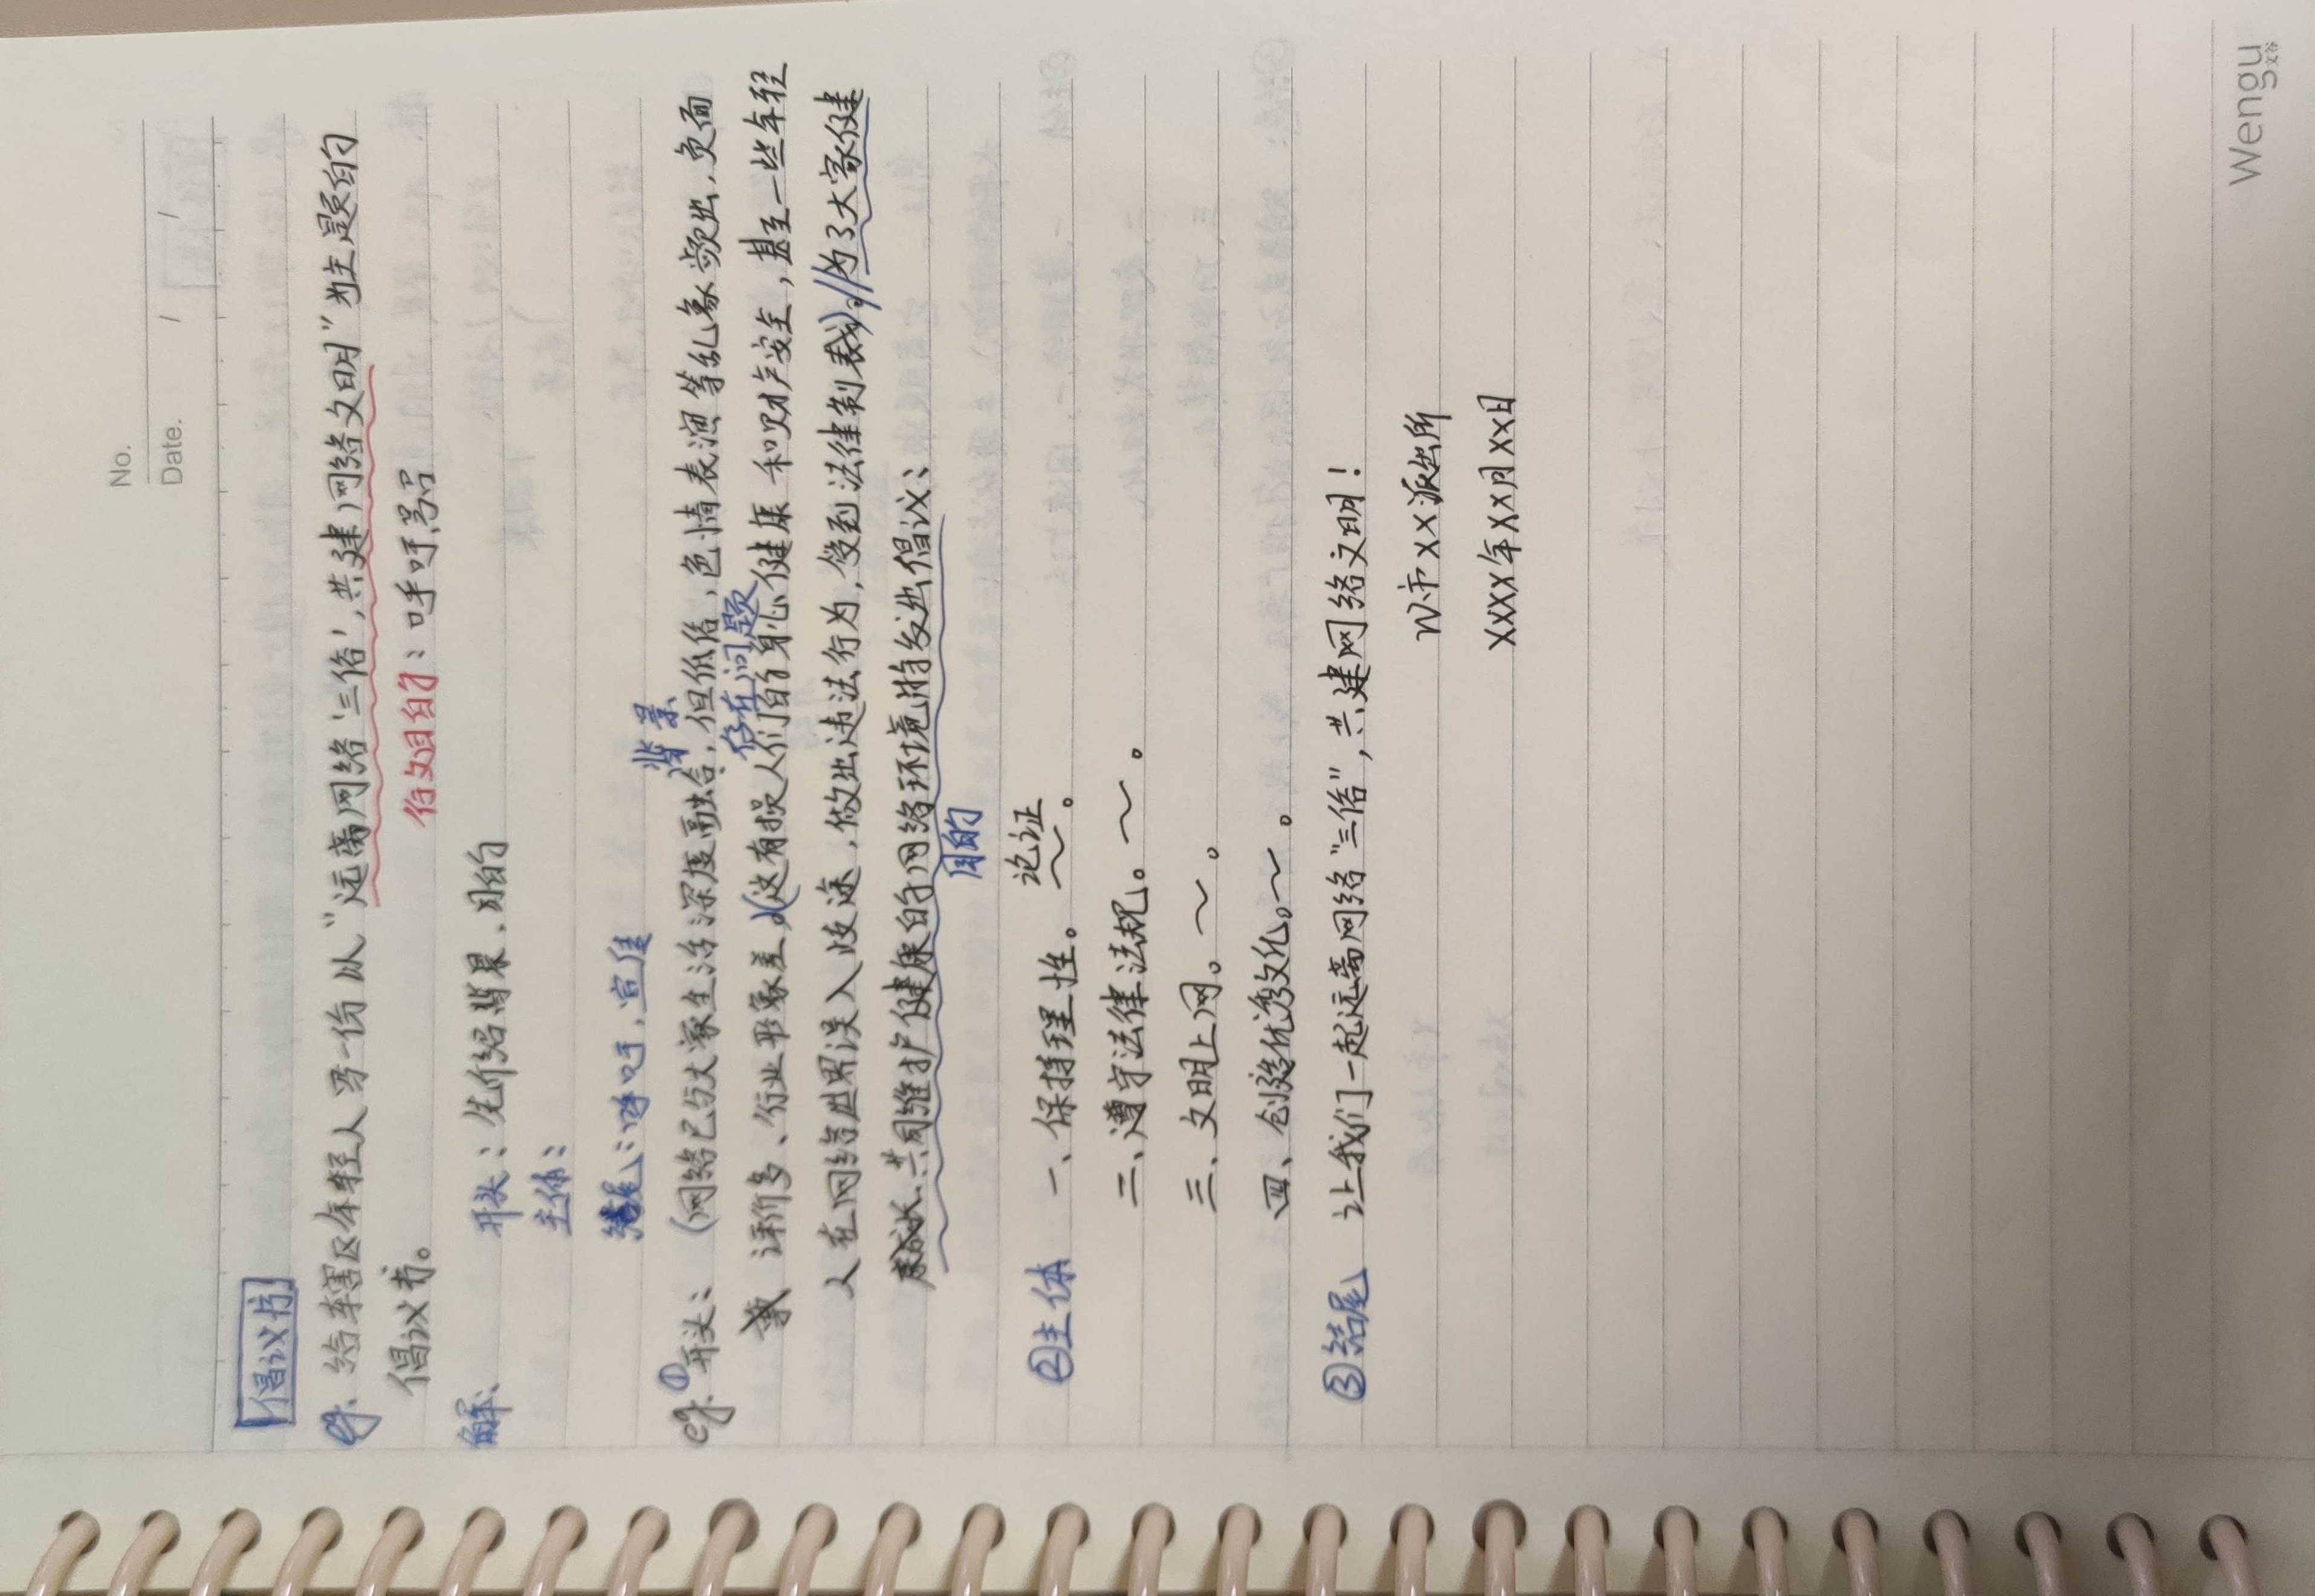 No.
Date. / /
倡议书
eg. 给辖区年轻人写一份以“远离网络‘三俗’,共建网络文明”为主题的
倡议书。
行文目的：呼吁、号召
解： 开头：先介绍背景、目的
主体：
结尾：呼吁、宣传
背景
eg. ①开头：（网络已与大家生活深度融合，但低俗，色情表演等乱象频出，负面
存在问题
评价多、行业形象差）。（这有损人们的身心健康和财产安全，甚至一些年轻
人在网络世界误入歧途，做出违法行为，受到法律制裁）。//为了大家健
康成长、共同维护健康的网络环境，特发出倡议：
目的
论证
②主体 一、保持理性。～。
二、遵守法律法规。～。
三、文明上网。～。
四、创造优秀文化。～。
③结尾 让我们一起远离网络“三俗”，共建网络文明！
W市XX派出所
XXXX年XX月XX日
Wengu
文谷